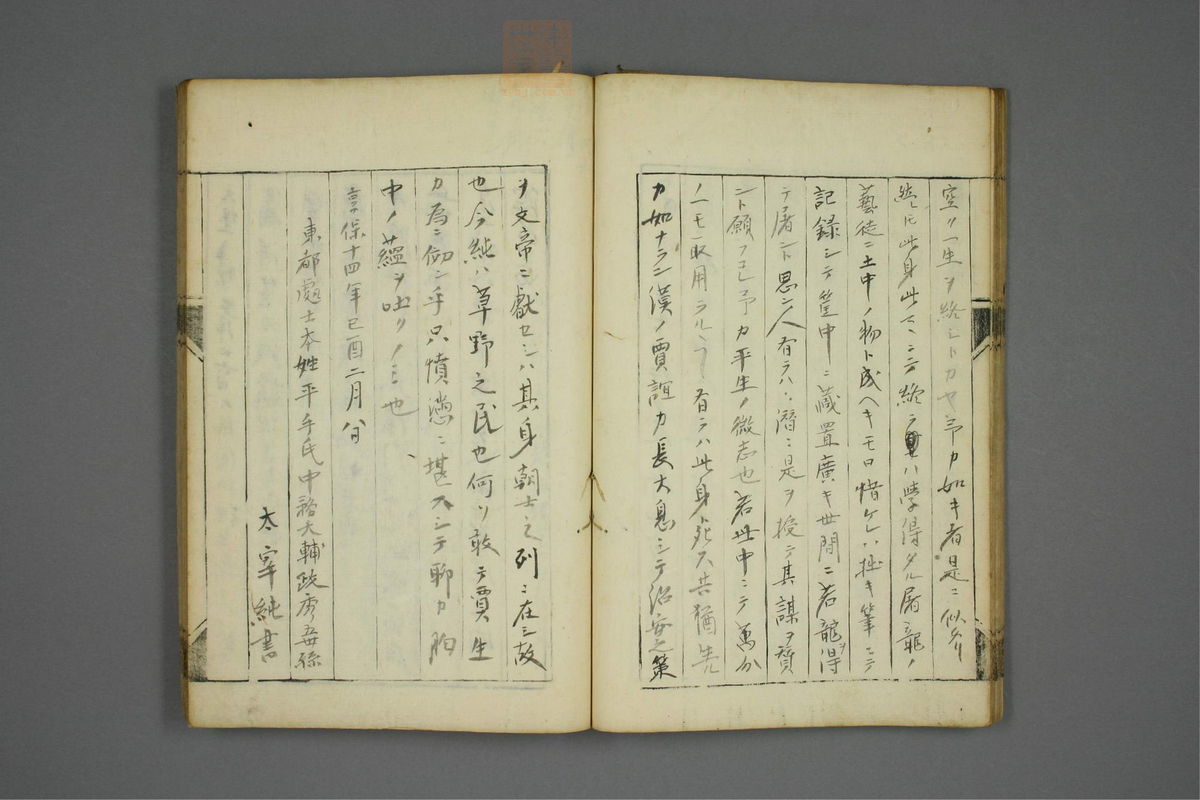 空ク一生ヲ終シトカヤ予カ如キ者是ニ似タリ
然トモ此身此マヽニテ終ラハ学得タル屠龍ノ
藝徒ニ土中ノ物ト成ヘキモ口惜ケレハ拙キ筆ニテ
記録シテ筐中ニ蔵置廣キ世間ニ若龍ヲ得
テ屠ント思ン人有ラハ潜ニ是ヲ授テ其謀ヲ賛
ント願フコレ予カ平生ノ微志也若世中ニテ萬分
ノ一モ取用ラルヽ有ラハ此身ハ死ス共猶生ル
カ如ナラン漢ノ賈誼カ長大息シテ治安之策
ヲ文帝ニ獻セシハ其身朝士之列ニ在シ故
也今純ハ草野之民也何ソ敢テ賈生
カ為ニ倣ン乎只憤懣ニ堪スシテ聊カ胸
中ノ蘊ヲ吐クノミ也
享保十四年己酉二月八日
東都處士本姓平手氏中務大輔政秀五世孫
太宰純書